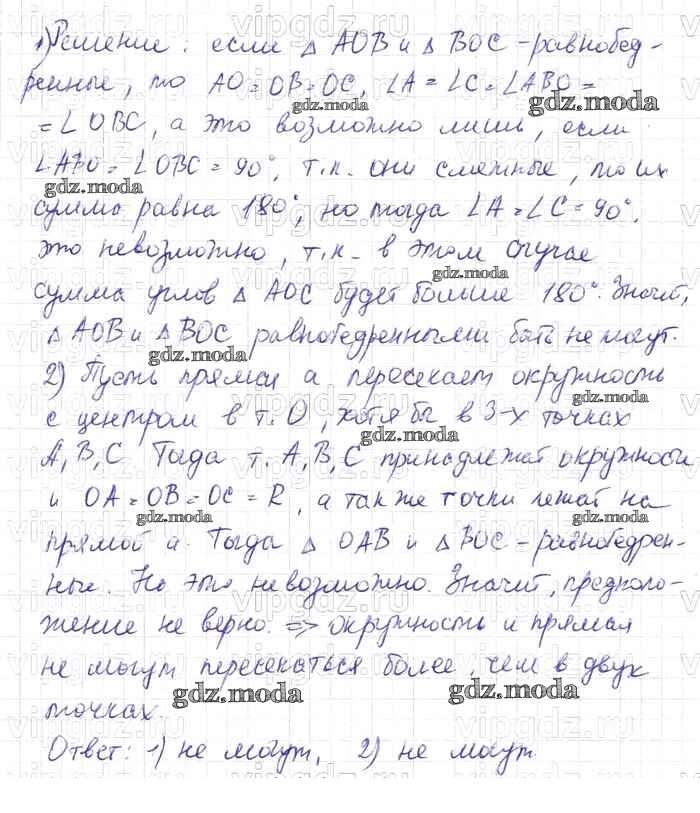 1) Решение: если Δ AOB и Δ BOC - равнобед-
ренные, то AO = OB = OC, ∠A = ∠C = ∠ABO =
= ∠OBC, а это возможно лишь, если
∠ABO = ∠OBC = 90°, т.к. они смежные, то их
сумма равна 180°, но тогда ∠A = ∠C = 90°,
это невозможно, т.к. в этом случае
сумма углов Δ AOC будет больше 180°. Значит,
Δ AOB и Δ BOC равнобедренными быть не могут.
2) Пусть прямая a пересекает окружность
с центром в т. O, хотя бы в 3-х точках
A, B, C Тогда т. A, B, C принадлежат окружности
и OA = OB = OC = R, а также точки лежат на
прямой a. Тогда Δ OAB и Δ BOC - равнобедрен-
ные. Но это невозможно. Значит, предполо-
жение не верно. => окружность и прямая
не могут пересекаться более, чем в двух
точках.
Ответ: 1) не могут, 2) не могут.
gdz.moda
vipgdz.ru